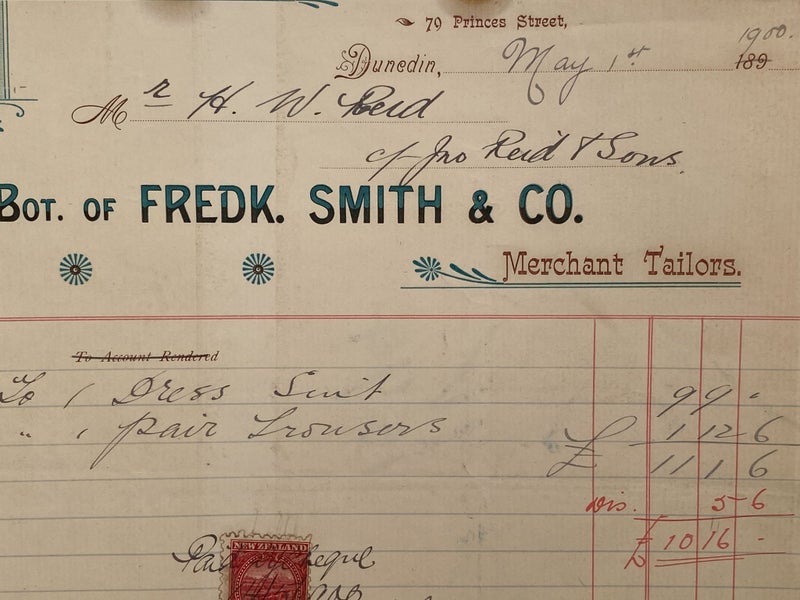 79 Princes Street,
Dunedin, May 1st 1900. 189
Mr H. W. Reid
c/ Jno Reid & Sons.
Bot. of FREDK. SMITH & CO.
Merchant Tailors.
To Account Rendered
To 1 Dress Suit 9 9 -
" 1 pair Trousers 1 12 6
£ 11 1 6
Dis. 5 6
£ 10 16 -
Paid by cheque
NEW ZEALAND